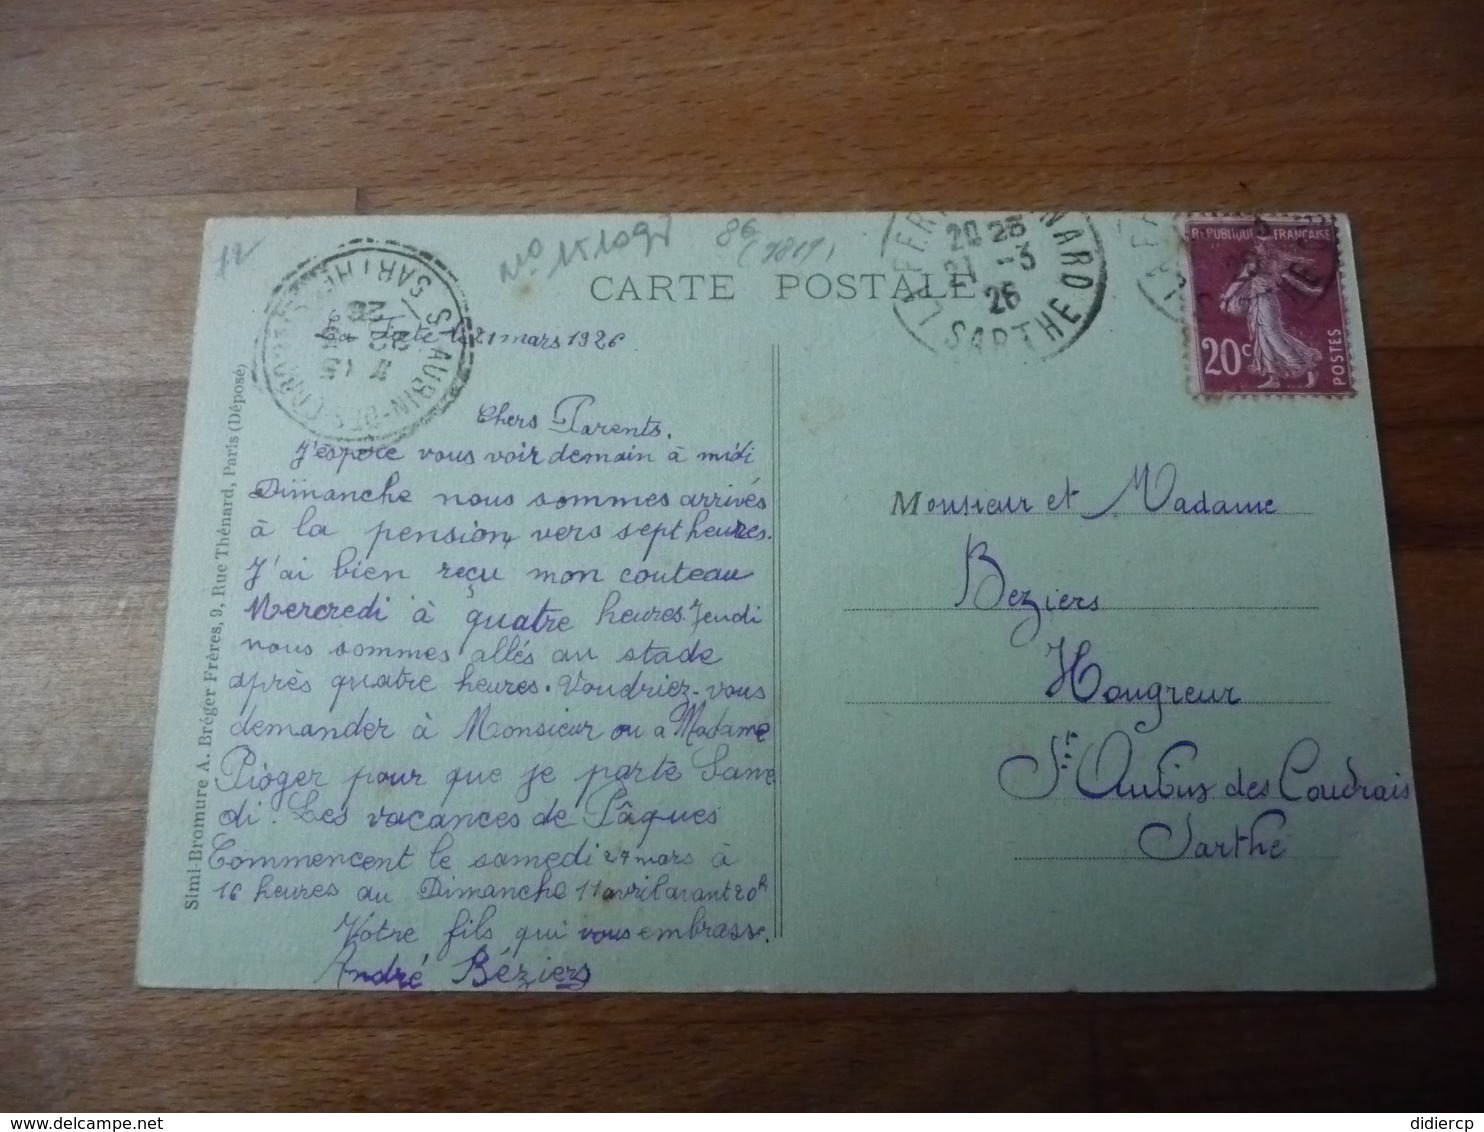 12
86
(1817)
CARTE POSTALE
LA FERTÉ BERNARD
20 25
21 -3
26
SARTHE
ST AUBIN-DES-COUDRAIS
SARTHE
RÉPUBLIQUE FRANÇAISE
20c
POSTES
La Ferté le 21 mars 1926
Chers Parents.
J'éspère vous voir demain à midi
Dimanche nous sommes arrivés
à la pension, vers sept heures.
J'ai bien reçu mon couteau
Mercredi à quatre heures. Jeudi
nous sommes allés au stade
après quatre heures. Voudriez-vous
demander à Monsieur ou a Madame
Pioger pour que je parte Same
di. Les vacances de Pâques
Commencent le samedi 27 mars à
16 heures au Dimanche 11 avril avant 20h
Votre fils qui vous embrasse.
André Béziers
Simi-Bromure A. Bréger Frères, 9, Rue Thénard, Paris (Déposé)
Monsieur et Madame
Beziers
Hougreur
St Aubin des Coudrais
Sarthe
didiercp